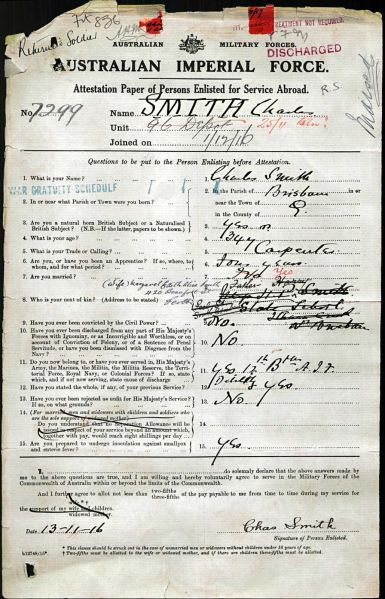 Fol 836
Returned Soldier
TREATMENT NOT REQUIRED.
DISCHARGED
AUSTRALIAN MILITARY FORCES.
AUSTRALIAN IMPERIAL FORCE.
R.S.
Attestation Paper of Persons Enlisted for Service Abroad.
No. 7299 Name SMITH Charles
Unit
Joined on 1/12/16
Questions to be put to the Person Enlisting before Attestation.
1. What is your Name? 1. Charles Smith
WAR GRATUITY SCHEDULE
2. In or near what Parish or Town were you born? 2. In the Parish of Brisbane in or
near the Town of
in the County of Q.
3. Are you a natural born British Subject or a Naturalised British Subject? (N.B.—If the latter, papers to be shown.) 3. Yes
4. What is your age? 4.
5. What is your Trade or Calling? 5. Carpenter
6. Are you, or have you been an Apprentice? If so, where, to whom, and for what period? 6. Four years
7. Are you married? 7. Yes
8. Who is your next of kin? (Address to be stated) 8. Father
Smith
State School
9. Have you ever been convicted by the Civil Power? 9. No
10. Have you ever been discharged from any part of His Majesty's Forces with Ignominy, or as Incorrigible and Worthless, or on account of Conviction of Felony, or of a Sentence of Penal Servitude, or have you been dismissed with Disgrace from the Navy? 10. No
11. Do you now belong to, or have you ever served in, His Majesty's Army, the Marines, the Militia, the Militia Reserve, the Territorial Force, Royal Navy, or Colonial Forces? If so, state which, and if not now serving, state cause of discharge 11. Yes A.I.F.
12. Have you stated the whole, if any, of your previous Service? 12. Yes.
13. Have you ever been rejected as unfit for His Majesty's Service? If so, on what grounds? 13. No
14. (For married men and widowers with children and soldiers who are the sole support of widowed mother)
Do you understand that no Separation Allowance will be issued in respect of your service beyond an amount which together with pay, would reach eight shillings per day 14.
15. Are you prepared to undergo inoculation against smallpox and enteric fever? 15. Yes.
I, do solemnly declare that the above answers made by me to the above questions are true, and I am willing and hereby voluntarily agree to serve in the Military Forces of the Commonwealth of Australia within or beyond the limits of the Commonwealth.
And I further agree to allot not less than two-fifths three-fifths of the pay payable to me from time to time during my service for
the support of my wife and children.
widowed mother.
Date 13-11-16 Chas Smith
Signature of Person Enlisted.
* This clause should be struck out in the case of unmarried men or widowers without children under 18 years of age.
† Two-fifths must be allotted to the wife or widowed mother, and if there are children three-fifths must be allotted.